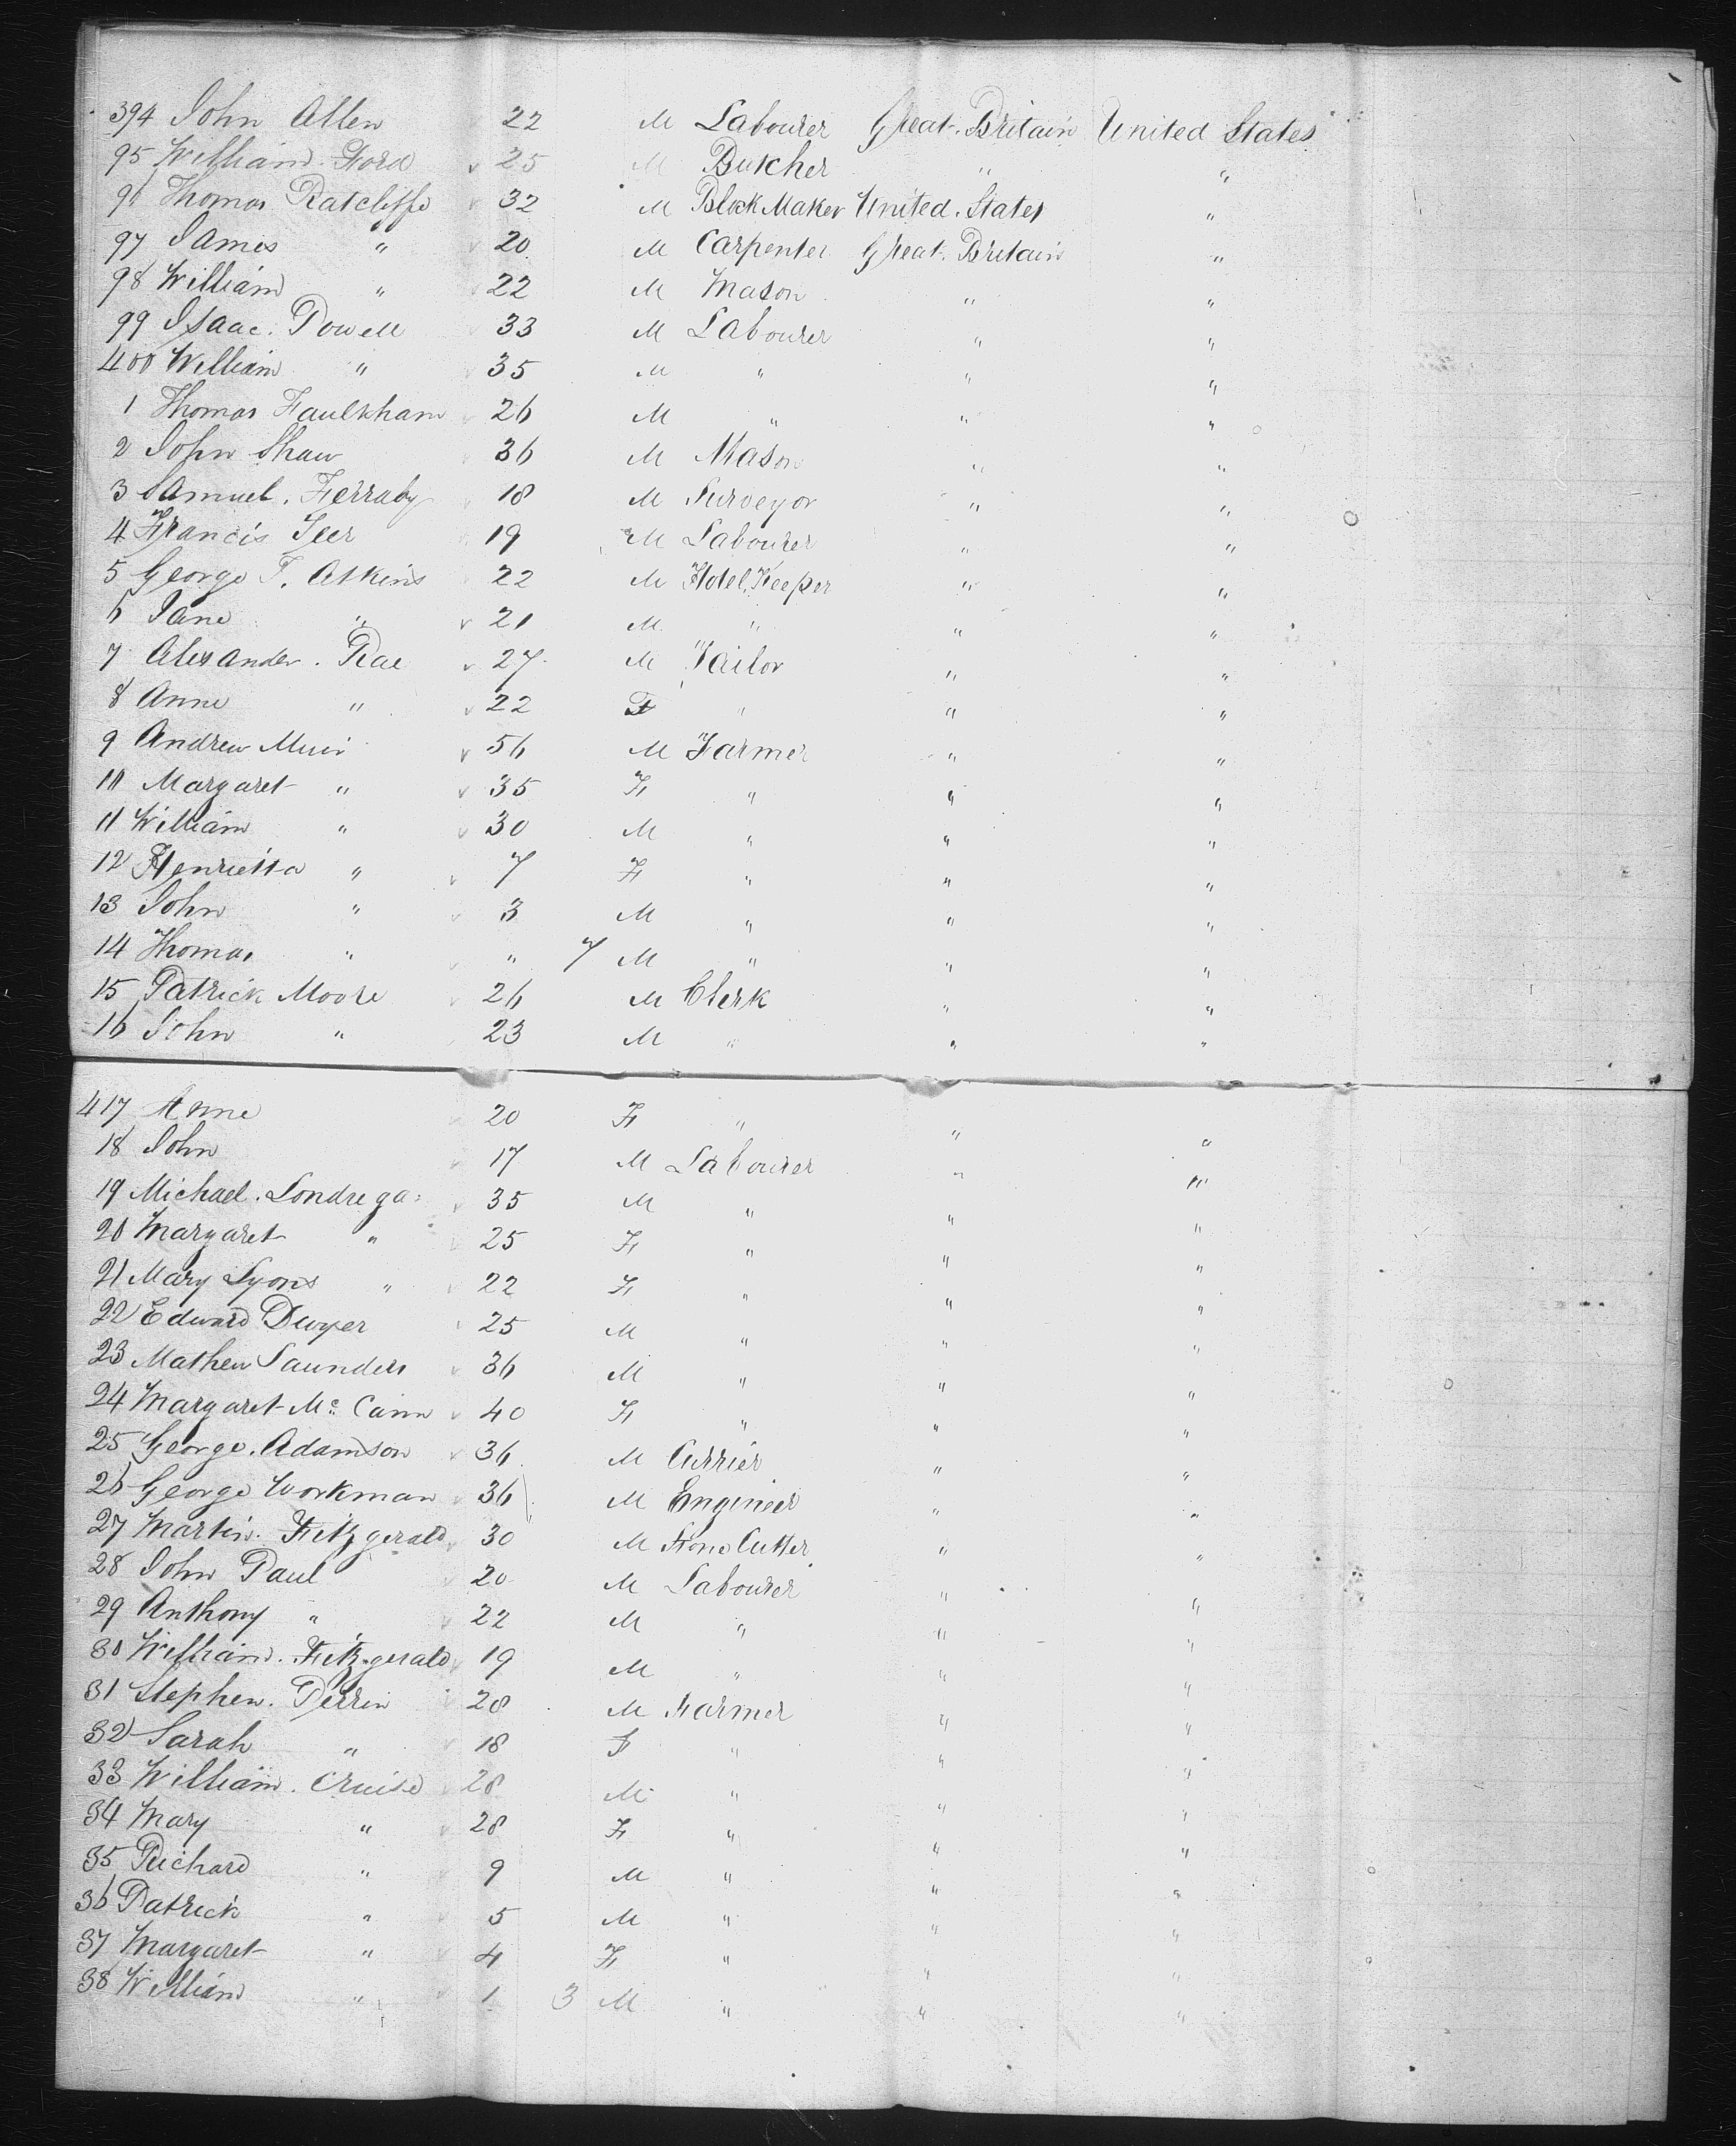 394 John Allen 22 M Labourer Great Britain United States
95 William Ford 25 M Butcher " "
96 Thomas Ratcliffe 32 M Block Maker United States "
97 James " 20 M Carpenter Great Britain "
98 William " 22 M Mason " "
99 Isaac Powell 33 M Labourer " "
400 William " 35 M " " "
1 Thomas Faulkham 26 M " " "
2 John Shaw 36 M Mason " "
3 Samuel Ferraby 18 M Surveyor " "
4 Francis 19 M Labourer " "
5 George F. Atkins 22 M Hotel Keeper " "
6 Jane " 21 M " " "
7 Alexander Rae 27 M Tailor " "
8 Anne " 22 F " " "
9 Andrew Muir 56 M Farmer " "
10 Margaret " 35 F " " "
11 William " 30 M " " "
12 Henrietta " 7 F " " "
13 John " 3 M " " "
14 Thomas " " 7 M " " "
15 Patrick Moore 26 M Clerk " "
16 John " 23 M " " "
417 Anne 20 F " " "
18 John 17 M Labourer " "
19 Michael Londrega 35 M " " "
20 Margaret " 25 F " " "
21 Mary Lyons " 22 F " " "
22 Edward Dwyer 25 M " " "
23 Mathew Saunders 36 M " " "
24 Margaret Mc Cann 40 F " " "
25 George Adamson 36 M Currier " "
26 George Workman 36 M Engineer " "
27 Martin Fitzgerald 30 M Stone Cutter " "
28 John Paul 20 M Labourer " "
29 Anthony " 22 M " " "
30 William Fitzgerald 19 M " " "
31 Stephen Perrin 28 M Farmer " "
32 Sarah " 18 F " " "
33 William Cruise 28 M " " "
34 Mary " 28 F " " "
35 Richard " 9 M " " "
36 Patrick " 5 M " " "
37 Margaret " 4 F " " "
38 William " 1 3 M " " "